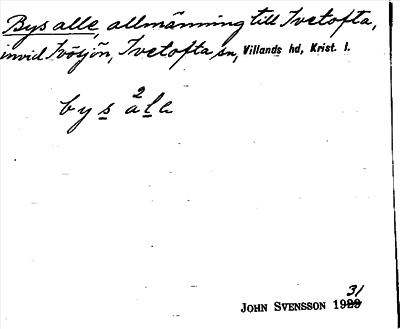 Bys alle, allmänning till Ivetofta,
invid Ivösjön, Ivetofta sn, Villands hd, Krist. l.
2
by s a l e
31
JOHN SVENSSON 1929